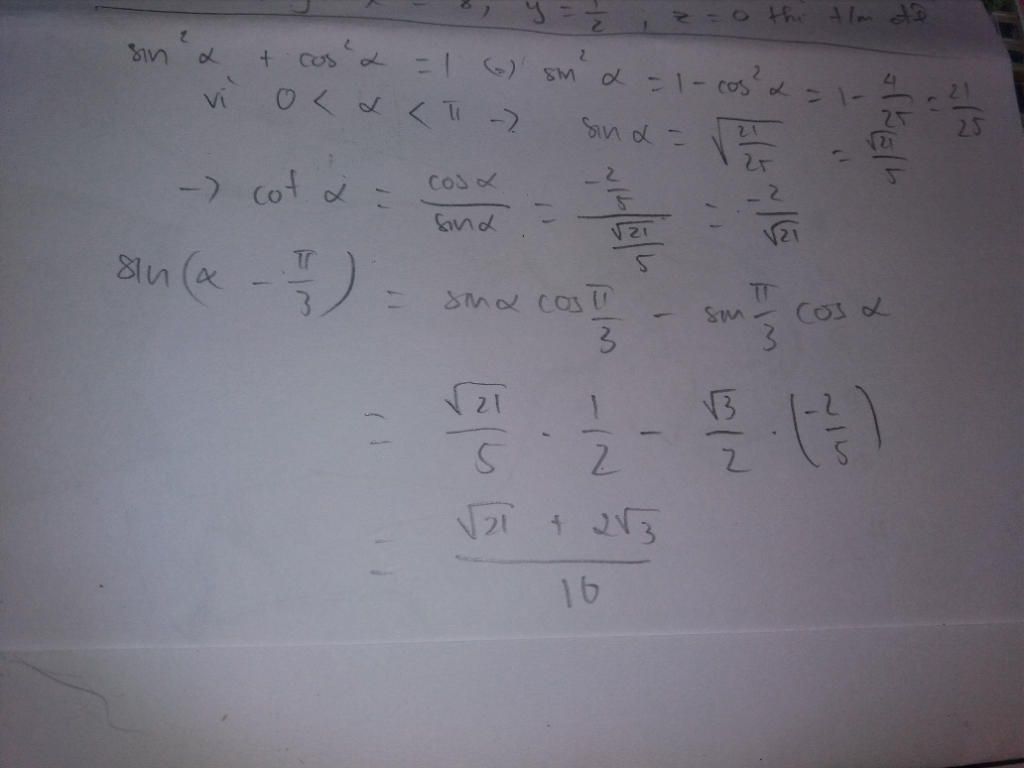 x = 8, y = 1/2, z = 0 thì t/m đề
sin²α + cos²α = 1 (=) sin²α = 1 - cos²α = 1 - 4/25 = 21/25
vì 0 < α < π -> sinα = √(21/25) = √21/5
-> cot α = cosα/sinα = (-2/5)/(√21/5) = -2/√21
sin(α - π/3) = sinα cos π/3 - sin π/3 cos α
= √21/5 . 1/2 - √3/2 . (-2/5)
= (√21 + 2√3)/10